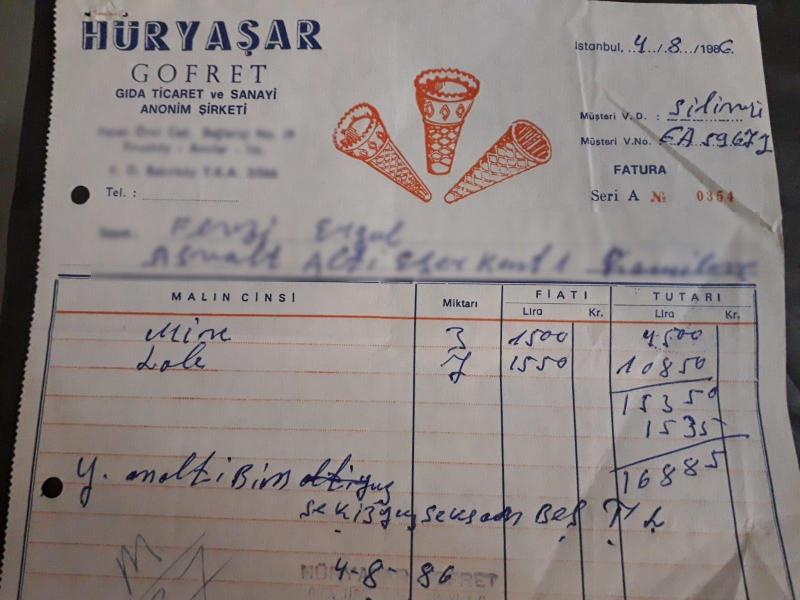 HÜRYAŞAR
GOFRET
GIDA TİCARET ve SANAYİ
ANONİM ŞİRKETİ
Tel. :
İstanbul, 4/8/1986
Müşteri V. D. : Silivri
Müşteri V.No. EA 59671
FATURA
Seri A № 0354
MALIN CİNSİ Miktarı FİATI TUTARI
Lira Kr. Lira Kr.
3 1500 4500
Lale 7 1550 10850
15350
1535
16885
Y. onaltı Bin
sekizyuz seksen Beş TL
4-8-86